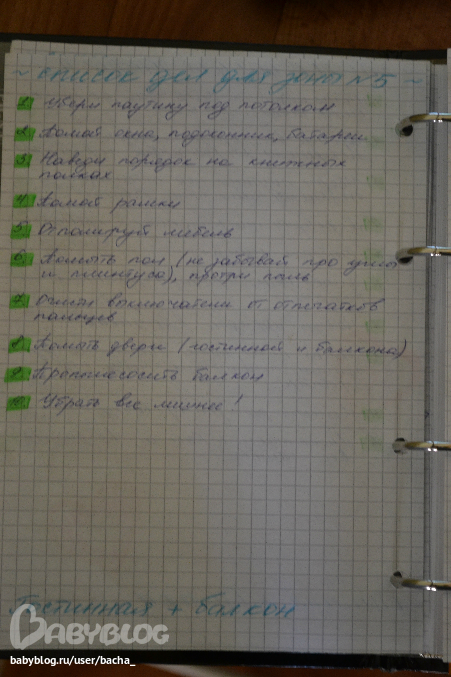 ~ Список дел для зоны №5 ~
1. Убери паутину под потолком
2. Помой окна, подоконник, батареи
3. Наведи порядок на книжных
полках
4. Помой рамки
5. Отполируй мебель
6. Помыть пол (не забывай про углы
и плинтуса), протри пыль
7. Очисти выключатели от отпечатков
пальцев
8. Помыть двери (гостинной и балкона)
9. Пропылесосить балкон
10. Убрать все лишнее!
Гостинная + балкон
BABYBLOG
babyblog.ru/user/bacha_